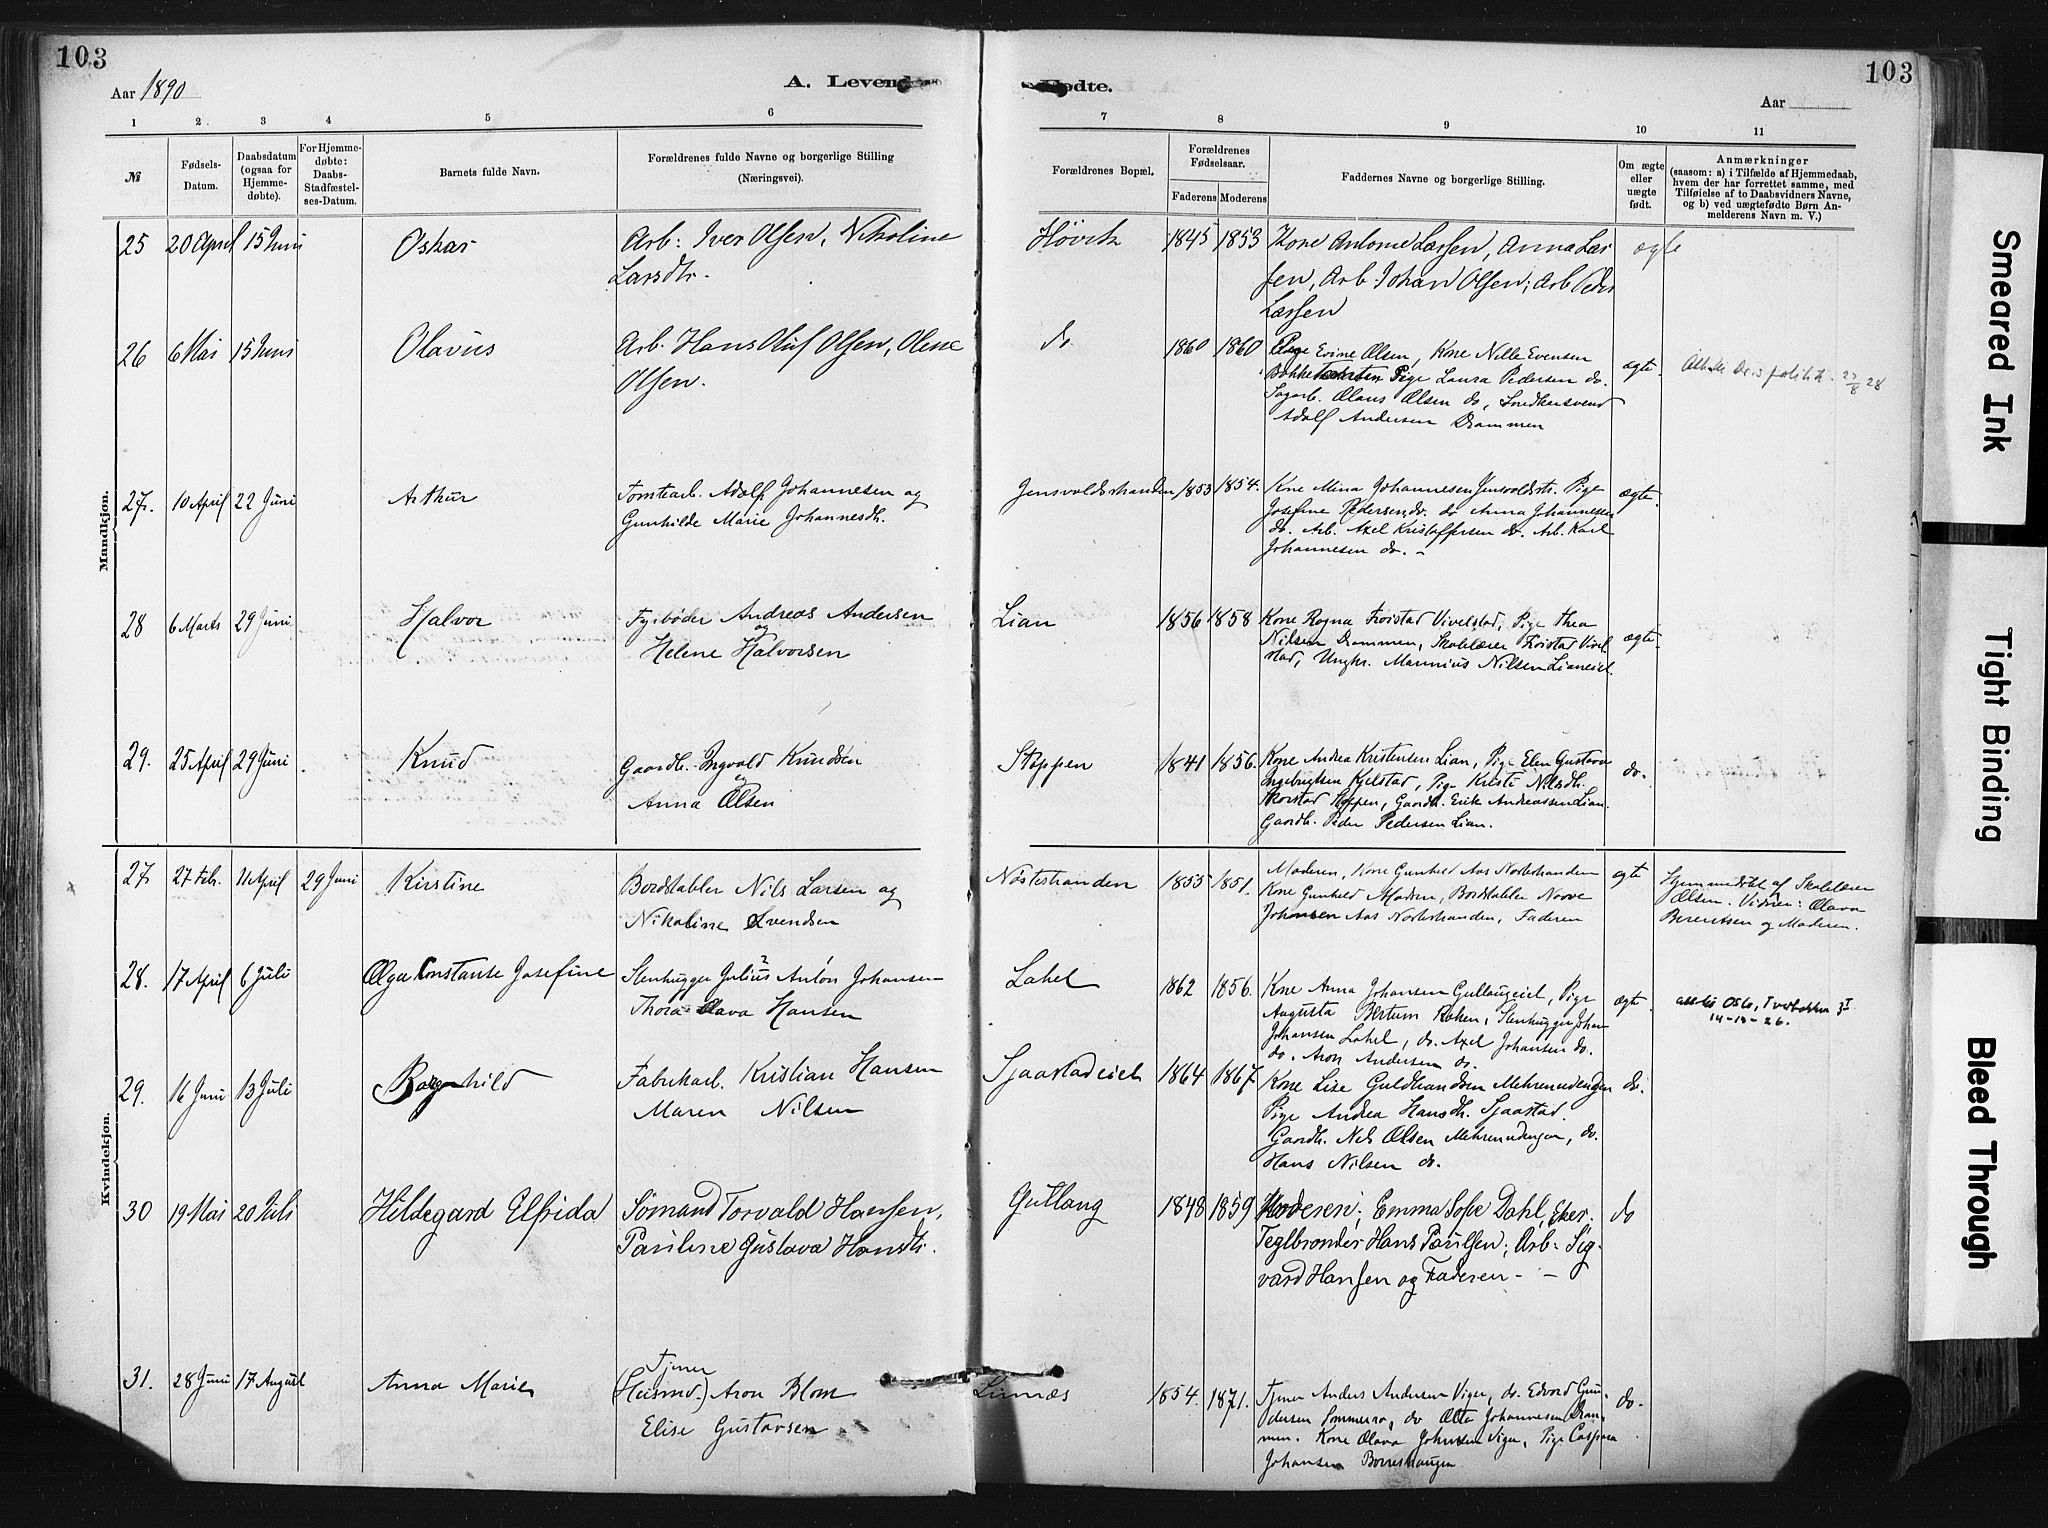 103
Aar 1890
A. Levend
1 2. 3 4 5 6
№
Fødsels-Datum.
Daabsdatum (ogsaa for Hjemme-døbte).
For Hjemme-døbte: Daabs-Stadfæstel-ses-Datum.
Barnets fulde Navn.
Forældrenes fulde Navne og borgerlige Stilling
(Næringsvei).
Mandkjøn.
25 20 April 15 Juni Oskar Arb: Iver Olsen, Nikoline
Larsdtr.
26 6 Mai 15 Juni Olavus Arb. Hans Oluf Olsen, Olene
Olsen.
27. 10 April 22 Juni Arthur Tomtearb. Adolf Johannesen og
Gunhilde Marie Johannesdtr.
28 6 Marts 29 Juni Halvor Fyrbøder Andreas Andersen
og
Helene Halvorsen
29. 25 April 29 Juni Knud Gaardb. Ingvald Knudsen
og
Anna Olsen
Kvindekjøn.
27 27 Feb. 11 April 29 Juni Kirstine Bordstabler Nils Larsen og
Nikoline Svendsen
28. 17 April 6 Juli Olga Constanse Josefine Stenhugger Julius Anton Johansen
Thora Olava Hansen
29. 16 Juni 13 Juli Borghild Fabrikarb. Kristian Hansen
Maren Nilsen
30 19 Mai 20 Juli Hildegard Elfrida Sømand Torvald Hansen,
Pauline Gustava Hansdtr.
31. 28 Juni 17 August Anna Marie Tjener
(Husmd.) Aron Blom
Elise Gustavsen
103
Aar
Fødte.
7 8 9 10 11
Forældrenes Bopæl.
Forældrenes Fødselsaar.
Faderens Moderens
Faddernes Navne og borgerlige Stilling.
Om ægte eller uægte født.
Anmærkninger
(saasom: a) i Tilfælde af Hjemmedaab,
hvem der har forrettet samme, med
Tilføielse af to Daabsvidners Navne,
og b) ved uægtefødte Børn An-
melderens Navn m. V.)
Høvik 1845 1853 Kone Antonie Larsen, Anna Lar- ægte
sen, Arb. Johan Olsen; Arb Peder
Larsen
do 1860 1860 Pige Evine Olsen, Kone Nille Evensen ægte.
Pige Laura Pedersen do.
Sagarb. Olaus Olsen do, Snedkersvend
Adolf Andersen Drammen
Jensvoldstranden 1853 1854. Kone Mina Johannesen Jensvoldstr. Pige ægte.
Josefine Pedersen do. do Anna Johannesen
do. Arb. Axel Kristoffersen do. Arb. Karl
Johannesen do.
Lian 1856 1858 Kone Ragna Frøistad Vivelstad, Pige Thea
Nilsen Drammen, Skolelærer Frøistad Vivel- ægte.
stad, Ungkr. Marinius Nilsen Lianeiet.
Stoppen 1841 1856. Kone Andrea Kristensen Lian, Pige Elen Gustava
Ingebrigtsen Kjelstad, Pige Kristi Nilsdtr. do.
Skorstad Stoppen, Gaardb. Erik Andreassen Lian.
Gaardb. Peder Pedersen Lian.
Nøstestranden 1855 1851. Moderen, Kone Gunhild Aas Nøstestranden ægte
Kone Gunhild Madsen, Bordstabler Nove
Johansen Aas Nøstestranden, Faderen
Hjemmedøbt af Skolelærer
Olsen. Vidner: Olava
Berentsen og Moderen.
Lahel 1862 1856. Kone Anna Johansen Gullaugeiet, Pige ægte.
Augusta Bertum Roken, Stenhugger Johan
Johansen Lahel, do. Axel Johansen do.
do. Aron Andersen do.
14-10-26.
Sjaastadeiet 1864 1867 Kone Lise Guldbrandsen Mehrenudengen do.
Pige Andrea Hansdtr. Sjaastad.
Gaardb. Nils Olsen Mehrenudengen, do.
Hans Nilsen do.
Gullaug 1848 1859 Moderen; Emma Sofie Dahl, Eker. do
Teglbrænder Hans Paulsen; Arb. Sig-
vard Hansen og Faderen
Linnæs 1854. 1871. Tjener Anders Andersen Viger, do. Edvard Gun- do.
dersen Sommerro, do Otto Johannesen Dram-
men. Kone Olava Johnsen Viger, Pige Caspara
Johansen Borreshaugen
Smeared Ink
Tight Binding
Bleed Through